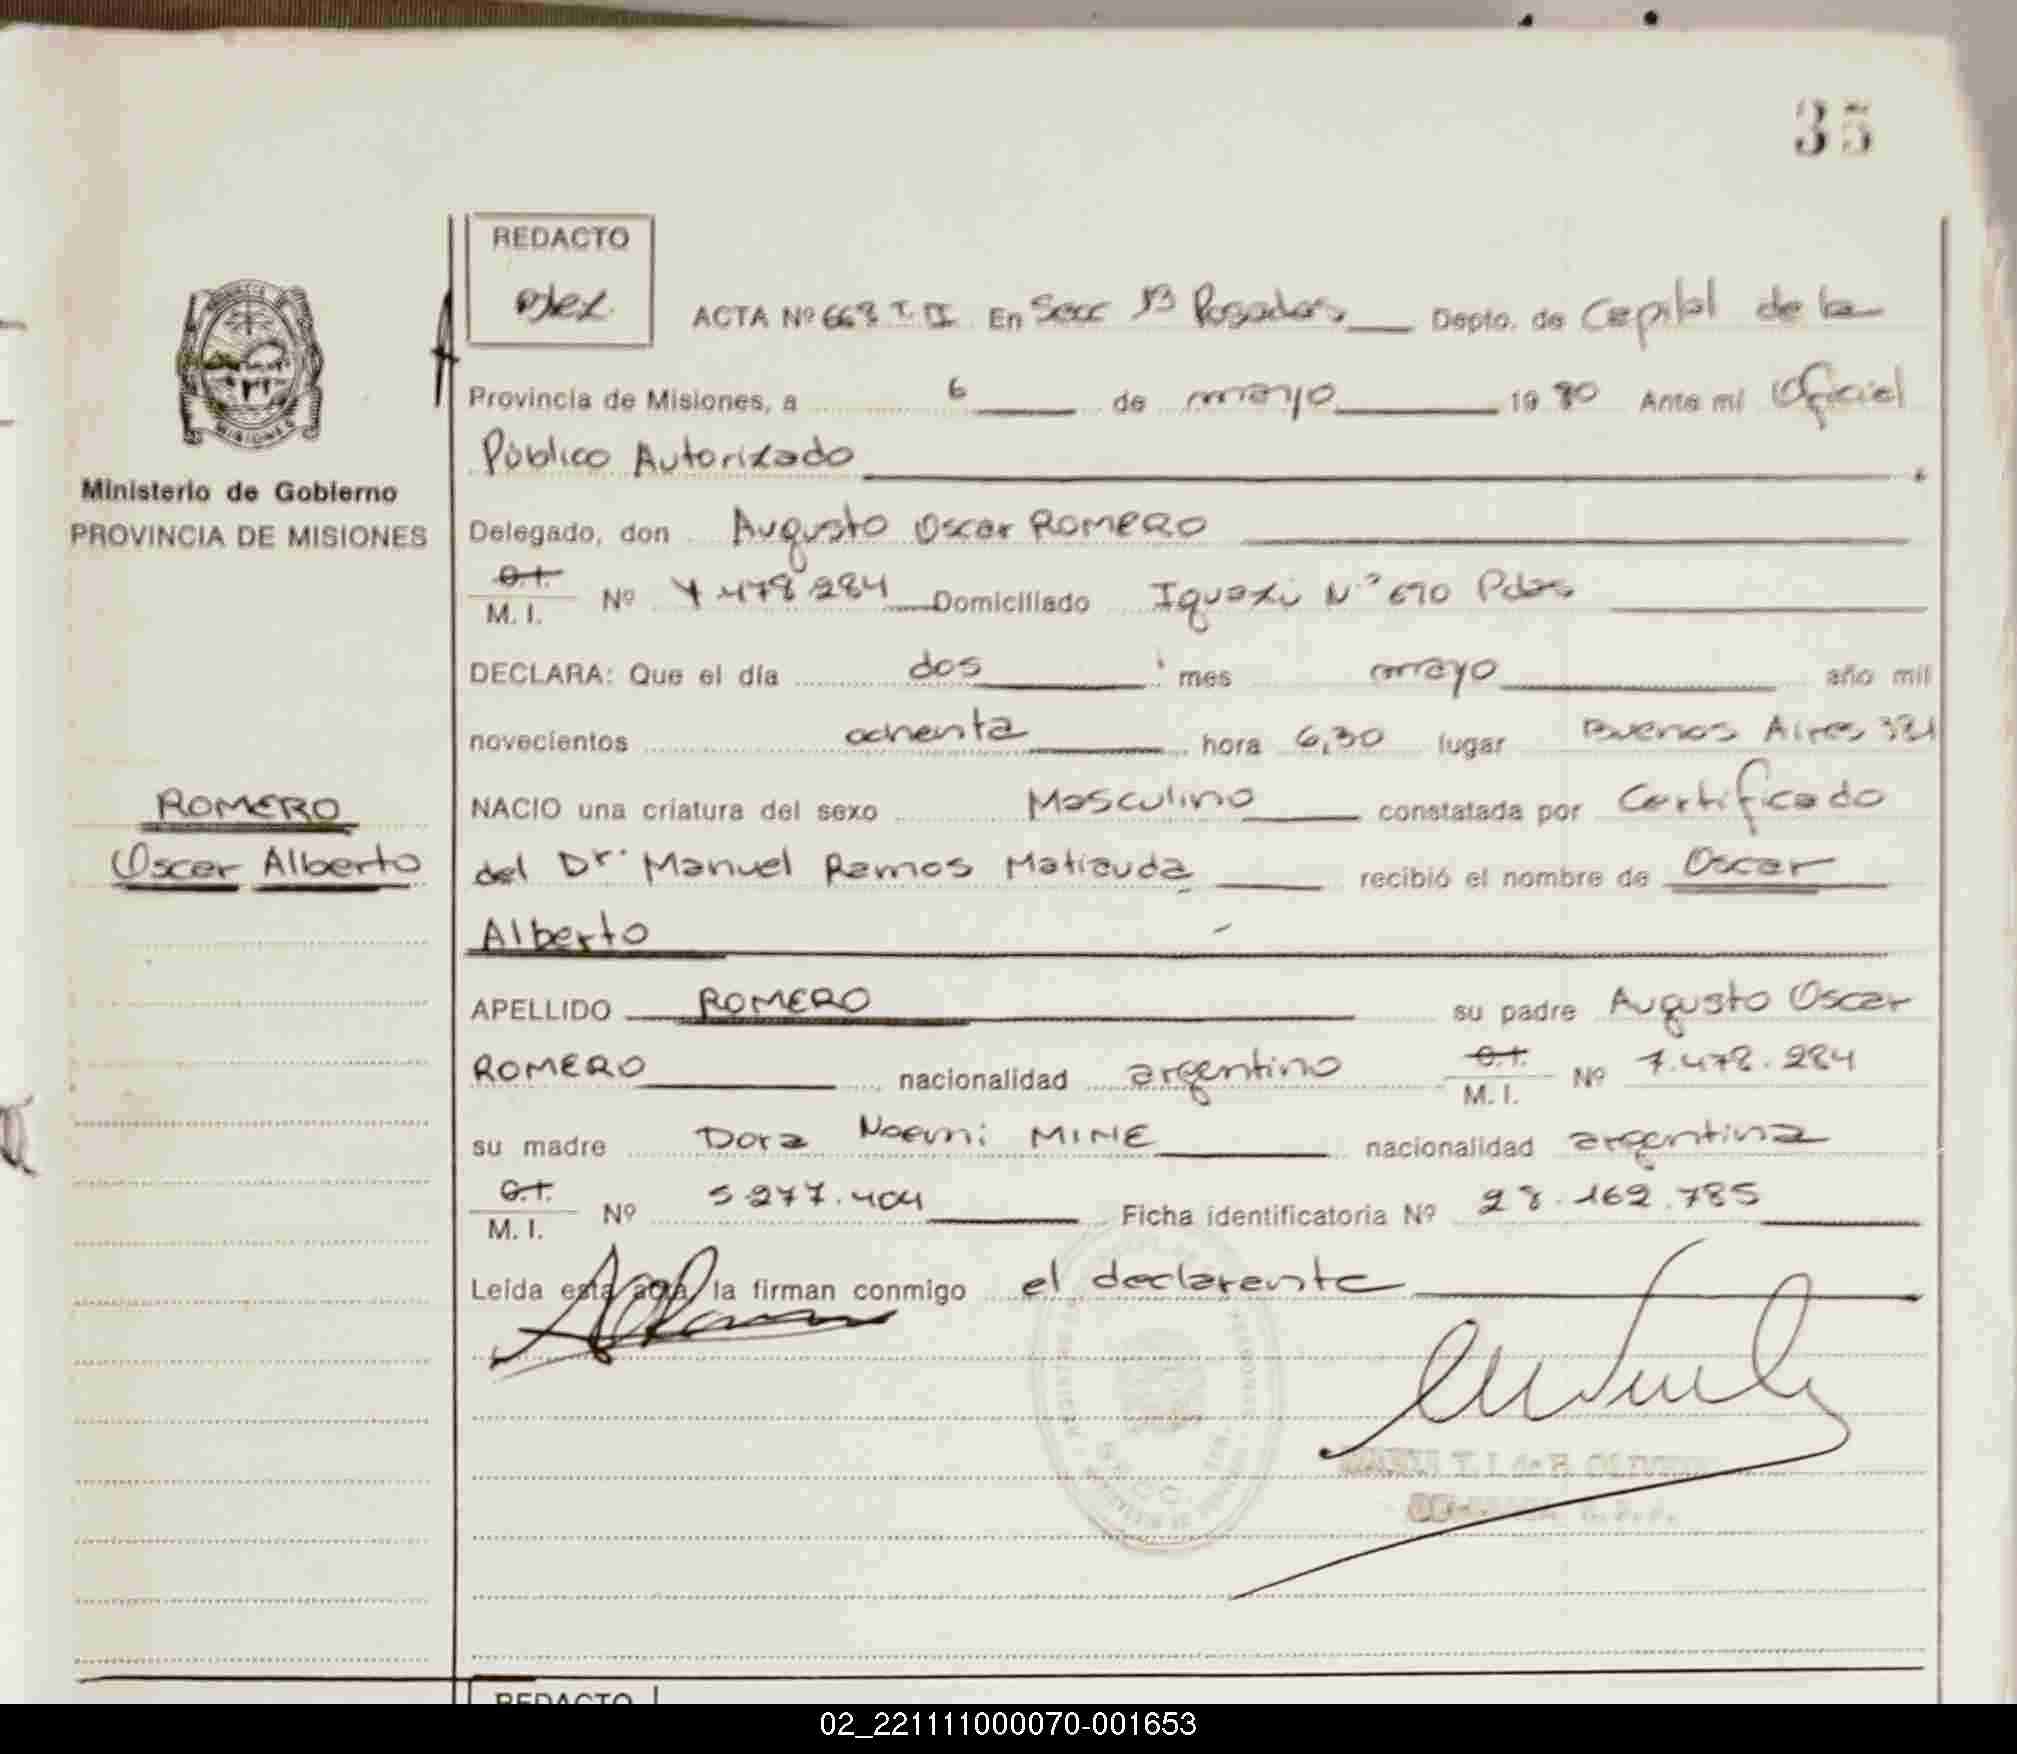 35
REDACTO
ACTA Nº 668 T. II En Secc 1ª Posadas Depto. de Capital de la
Provincia de Misiones, a 6 de mayo 19 80 Ante mi Oficial
Público Autorizado
Ministerio de Gobierno
PROVINCIA DE MISIONES
Delegado, don Augusto Oscar ROMERO
C.I.
M. I. Nº 7.478.284 Domiciliado Iguazú Nº 690 Pdas
DECLARA: Que el día dos mes mayo año mil
novecientos ochenta hora 6,30 lugar Buenos Aires
ROMERO
NACIO una criatura del sexo Masculino constatada por Certificado
Oscar Alberto
del Dr. Manuel Ramos Matiauda recibió el nombre de Oscar
Alberto
APELLIDO ROMERO su padre Augusto Oscar
ROMERO nacionalidad argentino C.I.
M. I. Nº 7.478.284
su madre Dora Noemi MINE nacionalidad argentina
C.I.
M. I. Nº 5.277.404 Ficha identificatoria Nº 28.162.785
Leída esta acta la firman conmigo el declarante
REDACTO
02_221111000070-001653